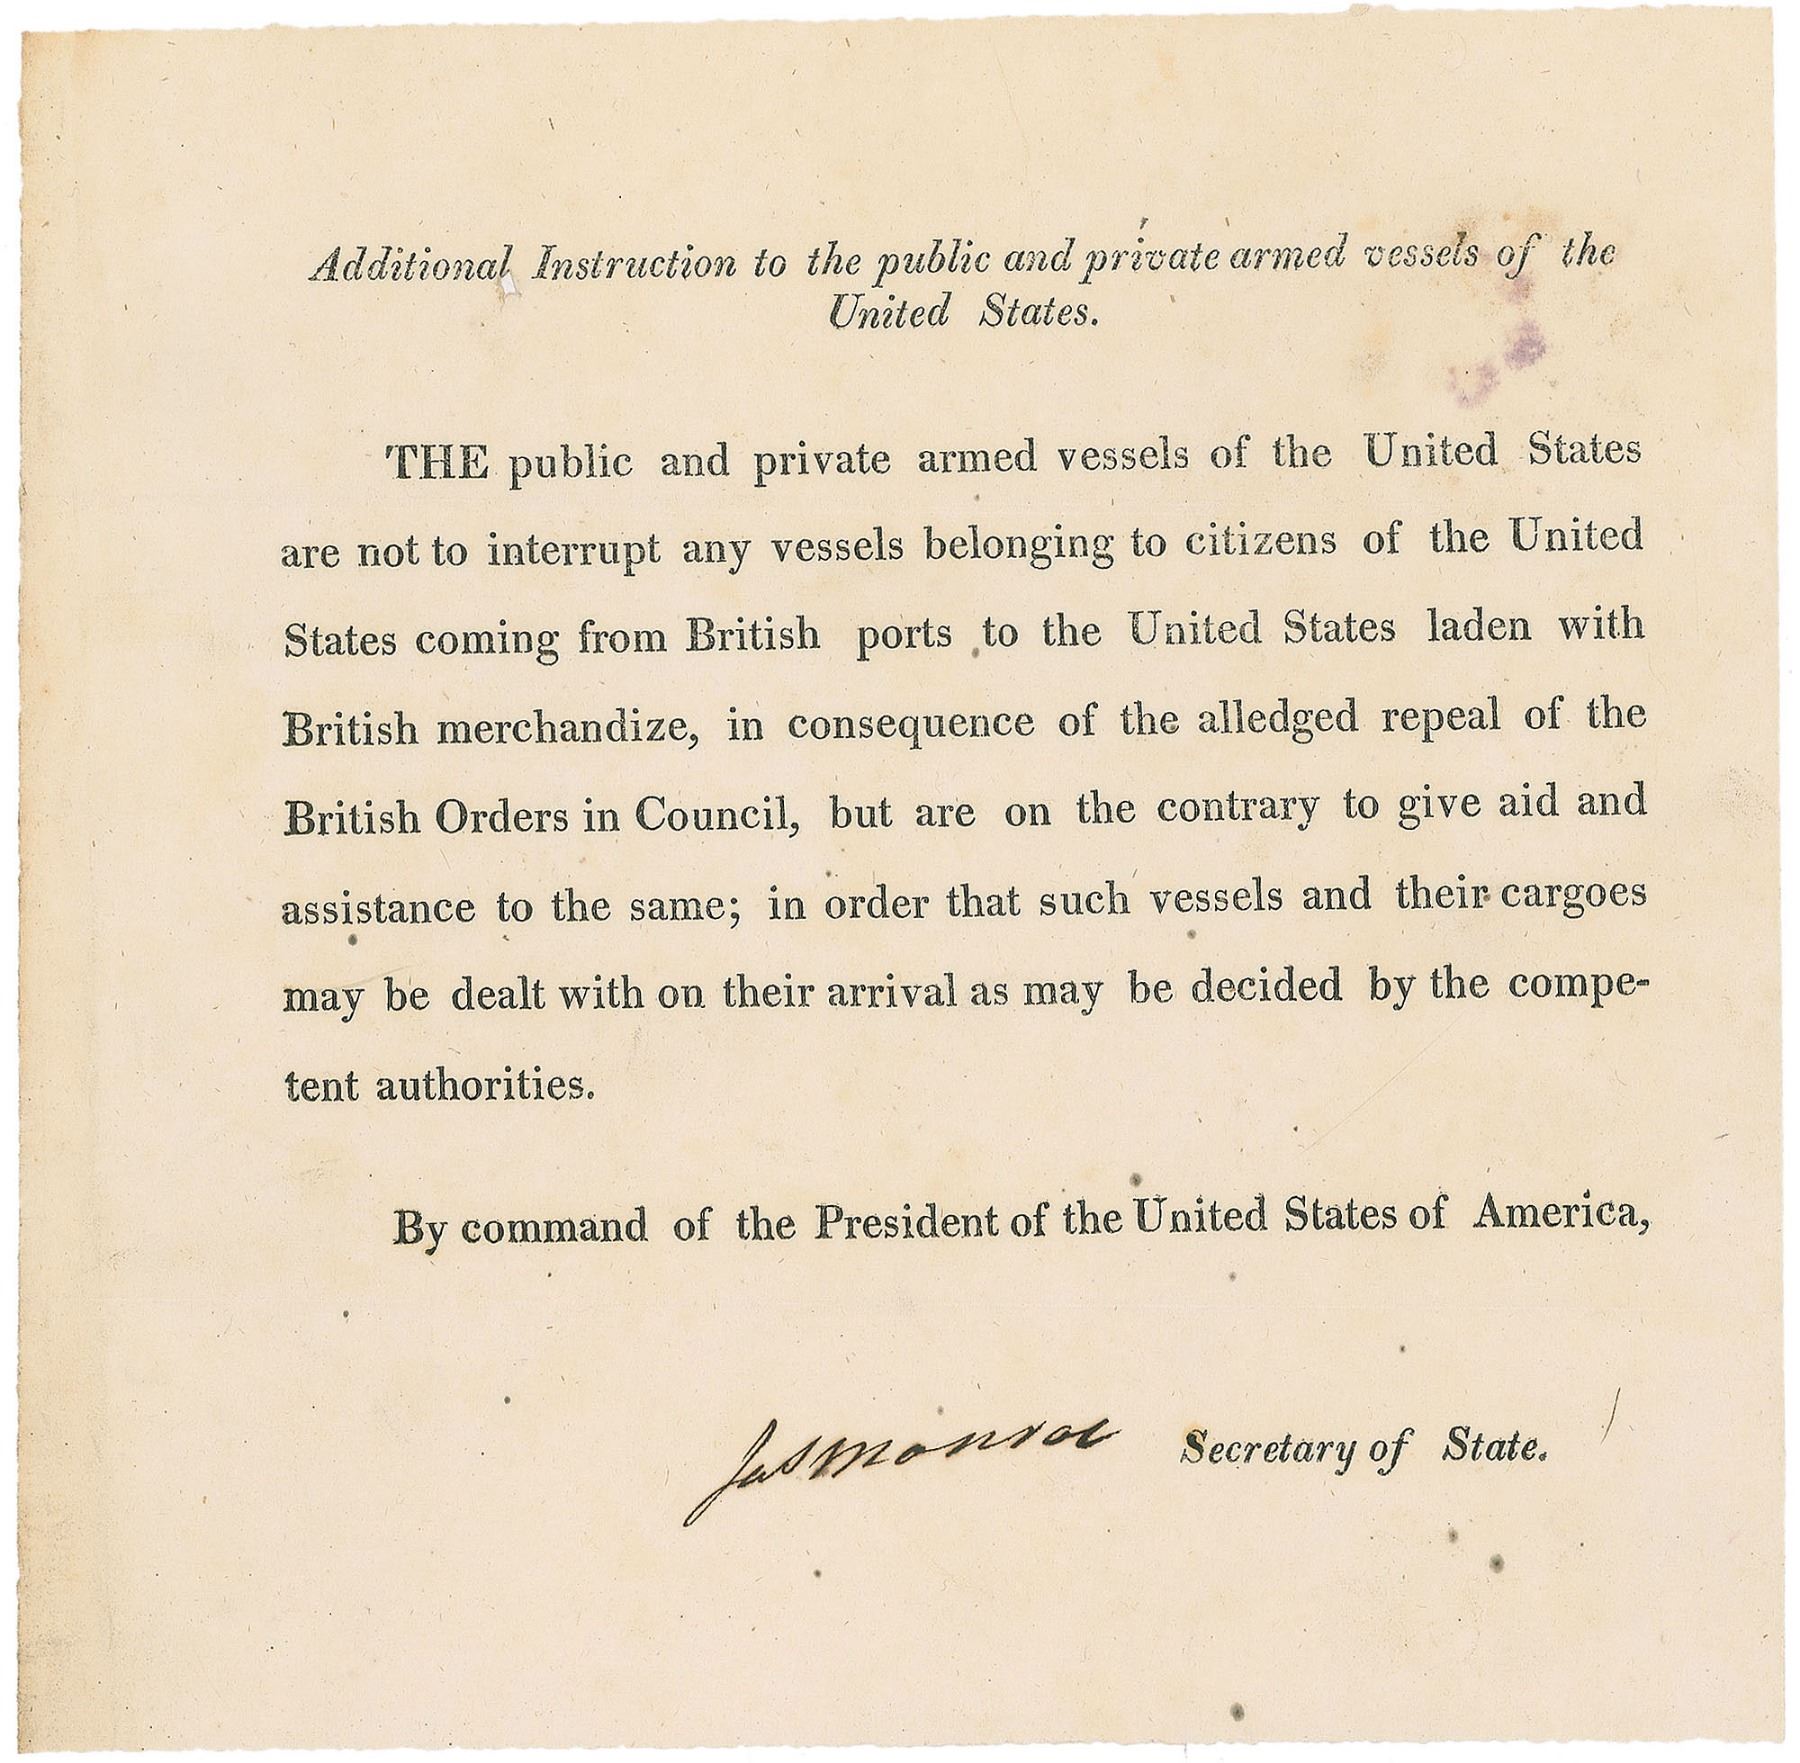 Additional Instruction to the public and private armed vessels of the
United States.
THE public and private armed vessels of the United States
are not to interrupt any vessels belonging to citizens of the United
States coming from British ports to the United States laden with
British merchandize, in consequence of the alledged repeal of the
British Orders in Council, but are on the contrary to give aid and
assistance to the same; in order that such vessels and their cargoes
may be dealt with on their arrival as may be decided by the compe-
tent authorities.
By command of the President of the United States of America,
Jas Monroe Secretary of State.